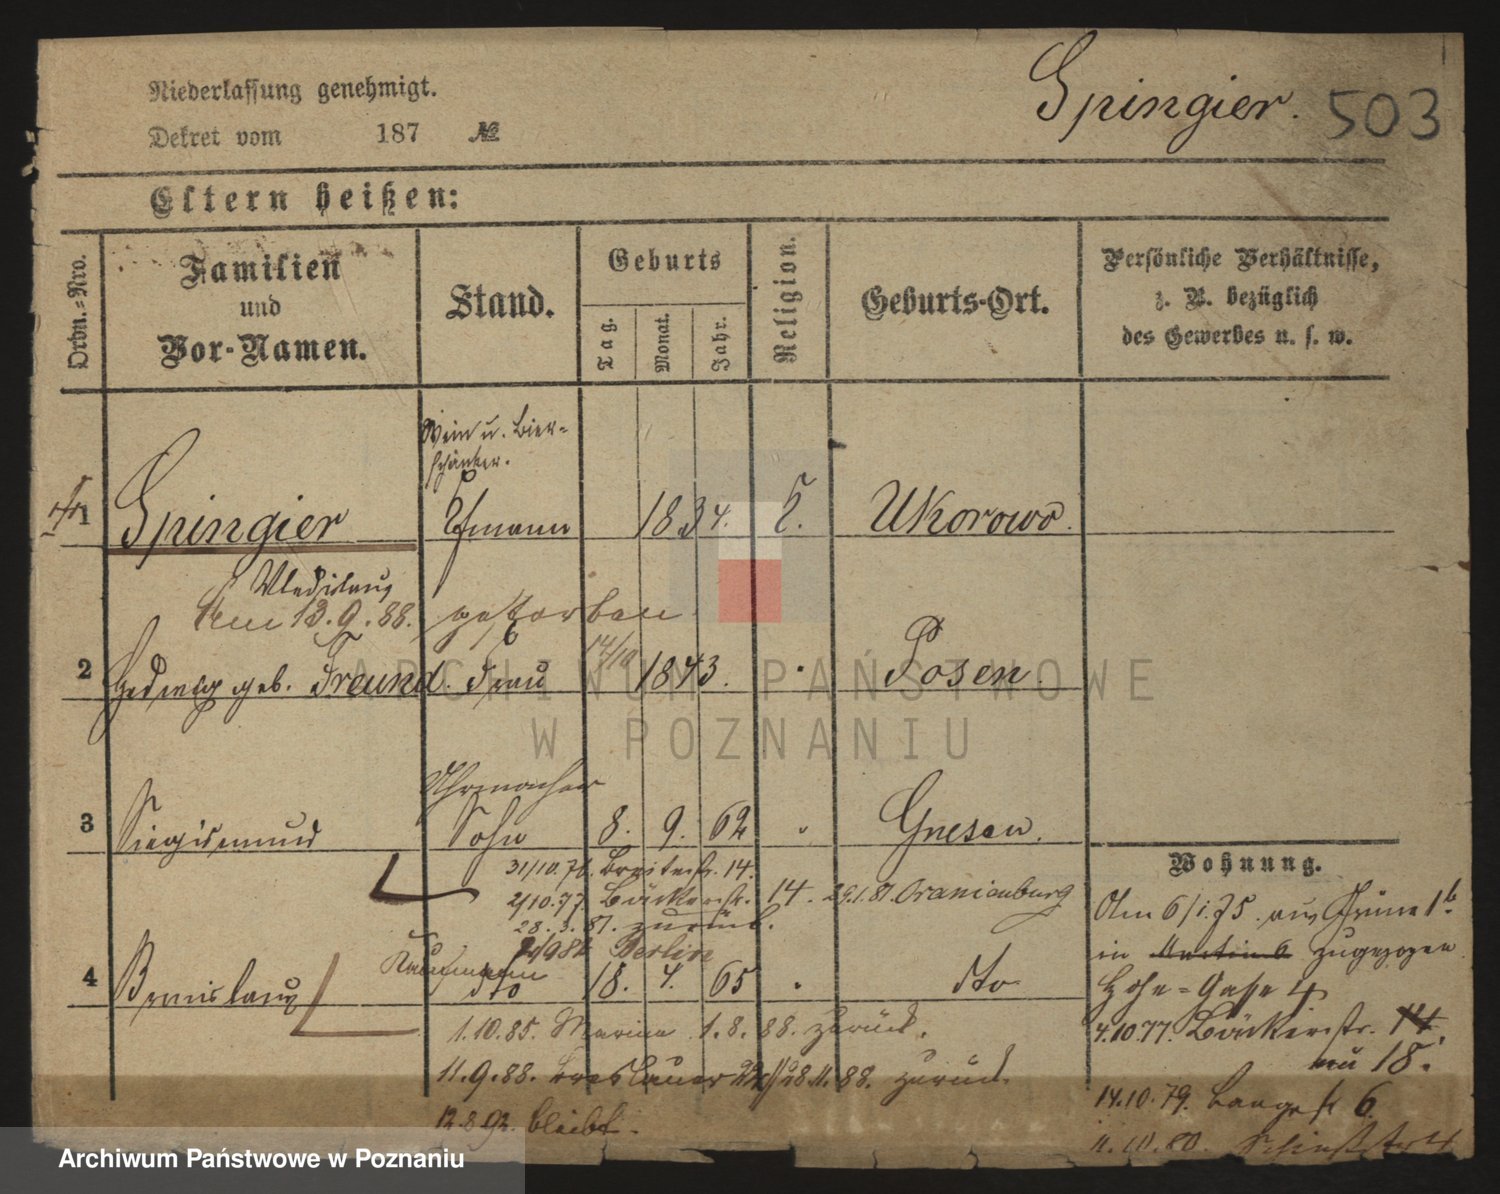 Niederlassung genehmigt.
Dekret vom 187 №
Spingier. 503
Eltern heißen:
Ordn.-Nro.
Familien
und
Vor-Namen.
Stand.
Geburts
Tag.
Monat.
Jahr.
Religion.
Geburts-Ort.
Persönliche Verhältnisse,
z. B. bezüglich
des Gewerbes u. s. w.
Wein u. Bier-
schänker.
1 Spingier 1834. Ukorowo.
Vladislaus
Am 13.9.88. gestorben
2 Hedwig geb. Freund. Frau 14/10 1843. Posen
Uhrmacher
3 Siegismund Sohn 8. 9. 62 Gnesen.
31/10.76. Breitestr. 14.
2/10.77 Bäckerstr. 14. 29.1.81. Oranienburg
28.3.81. zurück.
Berlin
Kaufmann
4 Bronislaus dto 18. 4. 65 dto
1.10.85. Marine 1.8.88. zurück.
11.9.88. Breslauer 28.11.88. zurück.
12.8.92. bleibt.
Wohnung.
Am 6/1.75. aus Grüne 1b
in zugezogen
Hohe-Gasse 4
4.10.77. Bäckerstr. 14.
nu 18.
14.10.79. Langestr 6.
11.10.80.
ARCHIWUM PAŃSTWOWE
W POZNANIU
Archiwum Państwowe w Poznaniu